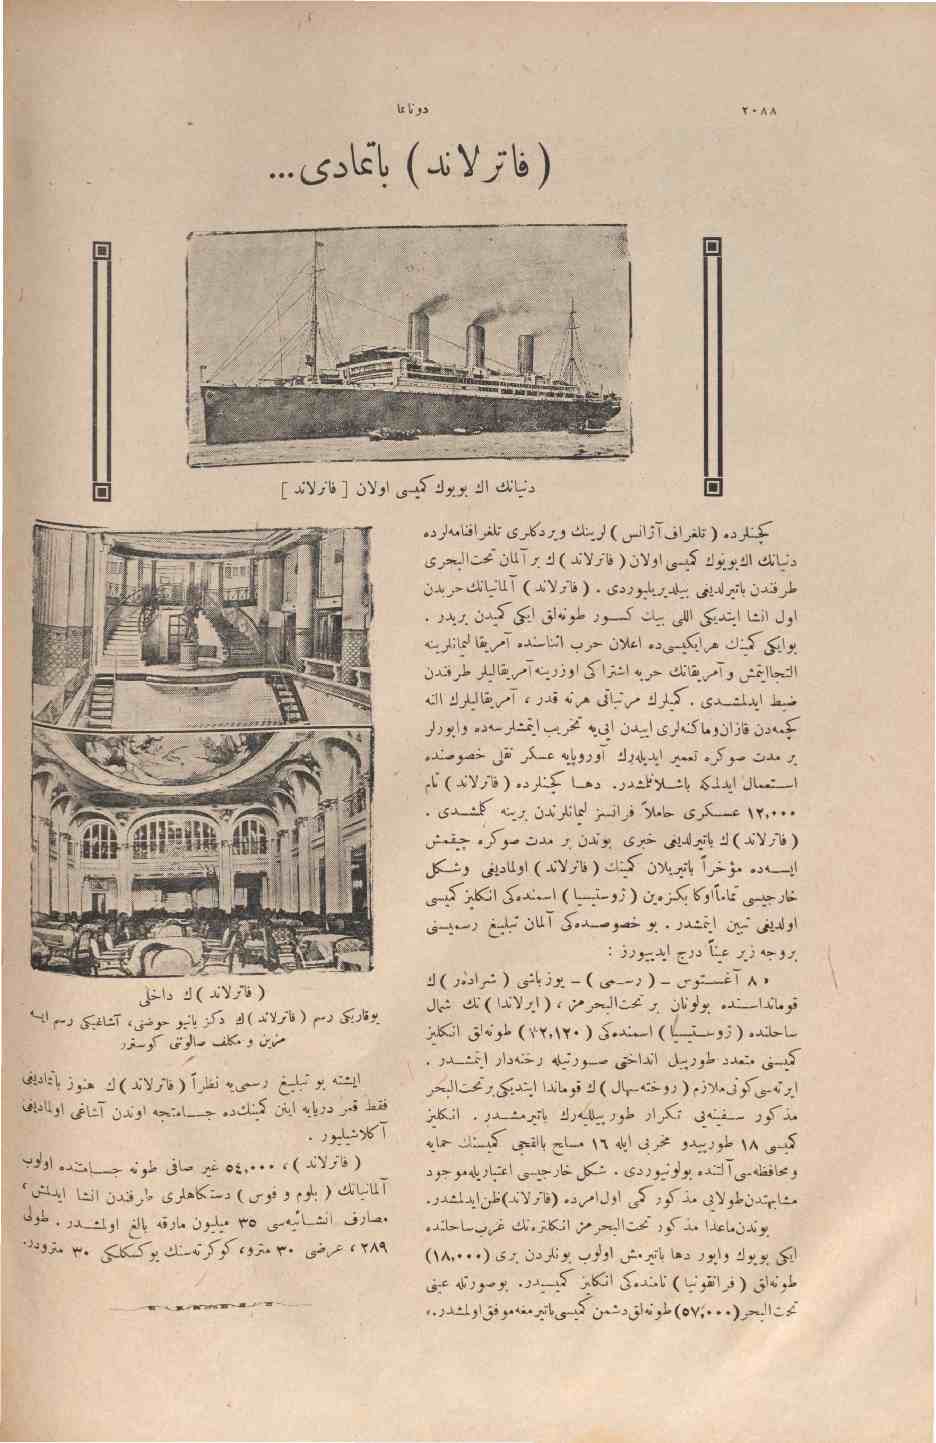 ٢٠٨٨
دونانما
( فاترلاند ) باتمادی...
دنیانك اك بویوك كمیسی اولان [ فاترلاند ]
كچنلرده ( تلغراف آژانس ) لرینك ویردكلری تلغرافنامه‌لرده
دنیانك اك بویوك كمیسی اولان ( فاترلاند ) ك بر آلمان تحت‌البحری
طرفندن باتیرلدیغی بیلدیریلیوردی . ( فاترلاند ) آلمانیانك حربدن
اول انشا ایتدیكی اللی بیك كسور طونه‌لق ایكی كمیدن بریدر .
بو ایكی كمینك هر ایكیسی‌ده اعلان حرب اثناسنده آمریقا لیمانلرینه
التجا ایتمش و آمریقانك حربه اشتراكی اوزرینه آمریقالیلر طرفندن
ضبط ایدلمشدی . كمیلرك مرتباتی هرنه قدر ، آمریقالیلرك النه
كچمه‌دن قازان و ماكنه‌لری اییدن اییه تخریب ایتمشلرسه‌ده واپورلر
بر مدت صوكره تعمیر ایدیله‌رك آوروپایه عسكر نقلی خصوصنده
استعمال ایدلمكه باشلانلمشدر. دها كچنلرده ( فاترلاند ) تام
١٢,٠٠٠ عسكری حاملاً فرانسز لیمانلرندن برینه كلمشدی .
( فاترلاند ) ك باتیرلدیغی خبری بوندن بر مدت صوكره چیقمش
ایسه‌ده مؤخراً باتیریلان كمینك ( فاترلاند ) اولمادیغی وشكل
خارجیسی تماماً اوكا بكزه‌ین ( ژوستیسیا ) اسمنده‌كی انكلیز كمیسی
اولدیغی تبین ایتمشدر . بو خصوصده‌كی آلمان تبلیغ رسمیسنی
بروجه زیر عیناً درج ایدییورز :
« ٨ آغستوس ـ ( رسمی ) ـ یوزباشی ( شرادهر ) ك
قومانداسنده بولونان بر تحت‌البحرمز ، ( ایرلاندا ) نك شمال
ساحلنده ( ژوستیسیا ) اسمنده‌كی ( ٣٢,١٢٠ ) طونه‌لق انكلیز
كمیسنی متعدد طورپیل انداختی صورتیله رخنه‌دار ایتمشدر .
ایرته‌سی كونی ملازم ( روخته‌سهال ) ك قوماندا ایتدیكی بر تحت‌البحر
مذكور سفینه‌یی تكرار طورپیللیه‌رك باتیرمشدر . انكلیز
كمیسی ١٨ طورپیدو مخربی ایله ١٦ مسلح بالقجی كمیسنك حمایه
ومحافظه‌سی آلتنده بولونیوردی . شكل خارجیسی اعتباریله موجود
مشابهتدن طولایی مذكور كمی اول امرده (فاترلاند) ظن ایدلمشدر.
بوندن ماعدا مذكور تحت‌البحرمز انكلتره‌نك غرب ساحلنده
ایكی بویوك واپور دها باتیرمش اولوب بونلردن بری (١٨,٠٠٠)
طونه‌لق ( فرانقونیا ) نامنده‌كی انكلیز كمیسیدر. بو صورتله عینی
تحت‌البحر (٥٧,٠٠٠) طونه‌لق دشمن كمیسی باتیرمغه موفق اولمشدر.»
( فاترلاند ) ك داخلی
یوقاریكی رسم ( فاترلاند ) ك دكز بانیو حوضنی، آشاغیكی رسم ایسه
مزین و مكلف صالوننی كوستر
ایشته بو تبلیغ رسمی‌یه نظراً ( فاترلاند ) ك هنوز باتمادیغی
فقط قعر دریایه اینن كمینك‌ده جسامتجه اوندن آشاغی اولمادیغی
آكلاشیلیور .
( فاترلاند )، ٥٤,٠٠٠ غیر صافی طونه جسامتنده اولوب
آلمانیانك ( بلوم و فوس ) دستكاهلری طرفندن انشا ایدلمش،
مصارف انشائیه‌سی ٣٥ میلیون مارقه بالغ اولمشدر . طولی
٢٨٩ ، عرضی ٣٠ مترو، كوكرته‌سنك یوكسكلكی ٣٠ مترودر.